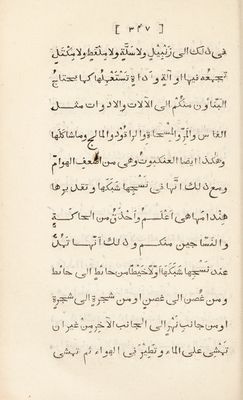 [ ٣٤٧ ]
فى ذلك الى زنبيل ولا سلّة ولا ملقط ولا مكتل
تجمعه فيها او آلة وأداة تستعملها كما يحتاج
البنّاون منكم الى الآلات والادوات مثل
الفاس والمرّ والمسحاة والراقود والمالج وما شاكلها
وهكذا ايضا العنكبوت وهى من اضعف الهوامّ
ومع ذلك انّها فى نسجها شبكها وتقديرها
هندامها هى اعلم وأحذق من الحاكة
والنسّاجين منكم وذلك أنّها تمدّ
عند نسجها شبكها اوّلا خيطا من حائط الى حائط
ومن غصن الى غصن او من شجرة الى شجرة
او من جانب نهر الى الجانب الآخر من غير ان
تمشى على الماء وتطير فى الهواء ثم تمشى